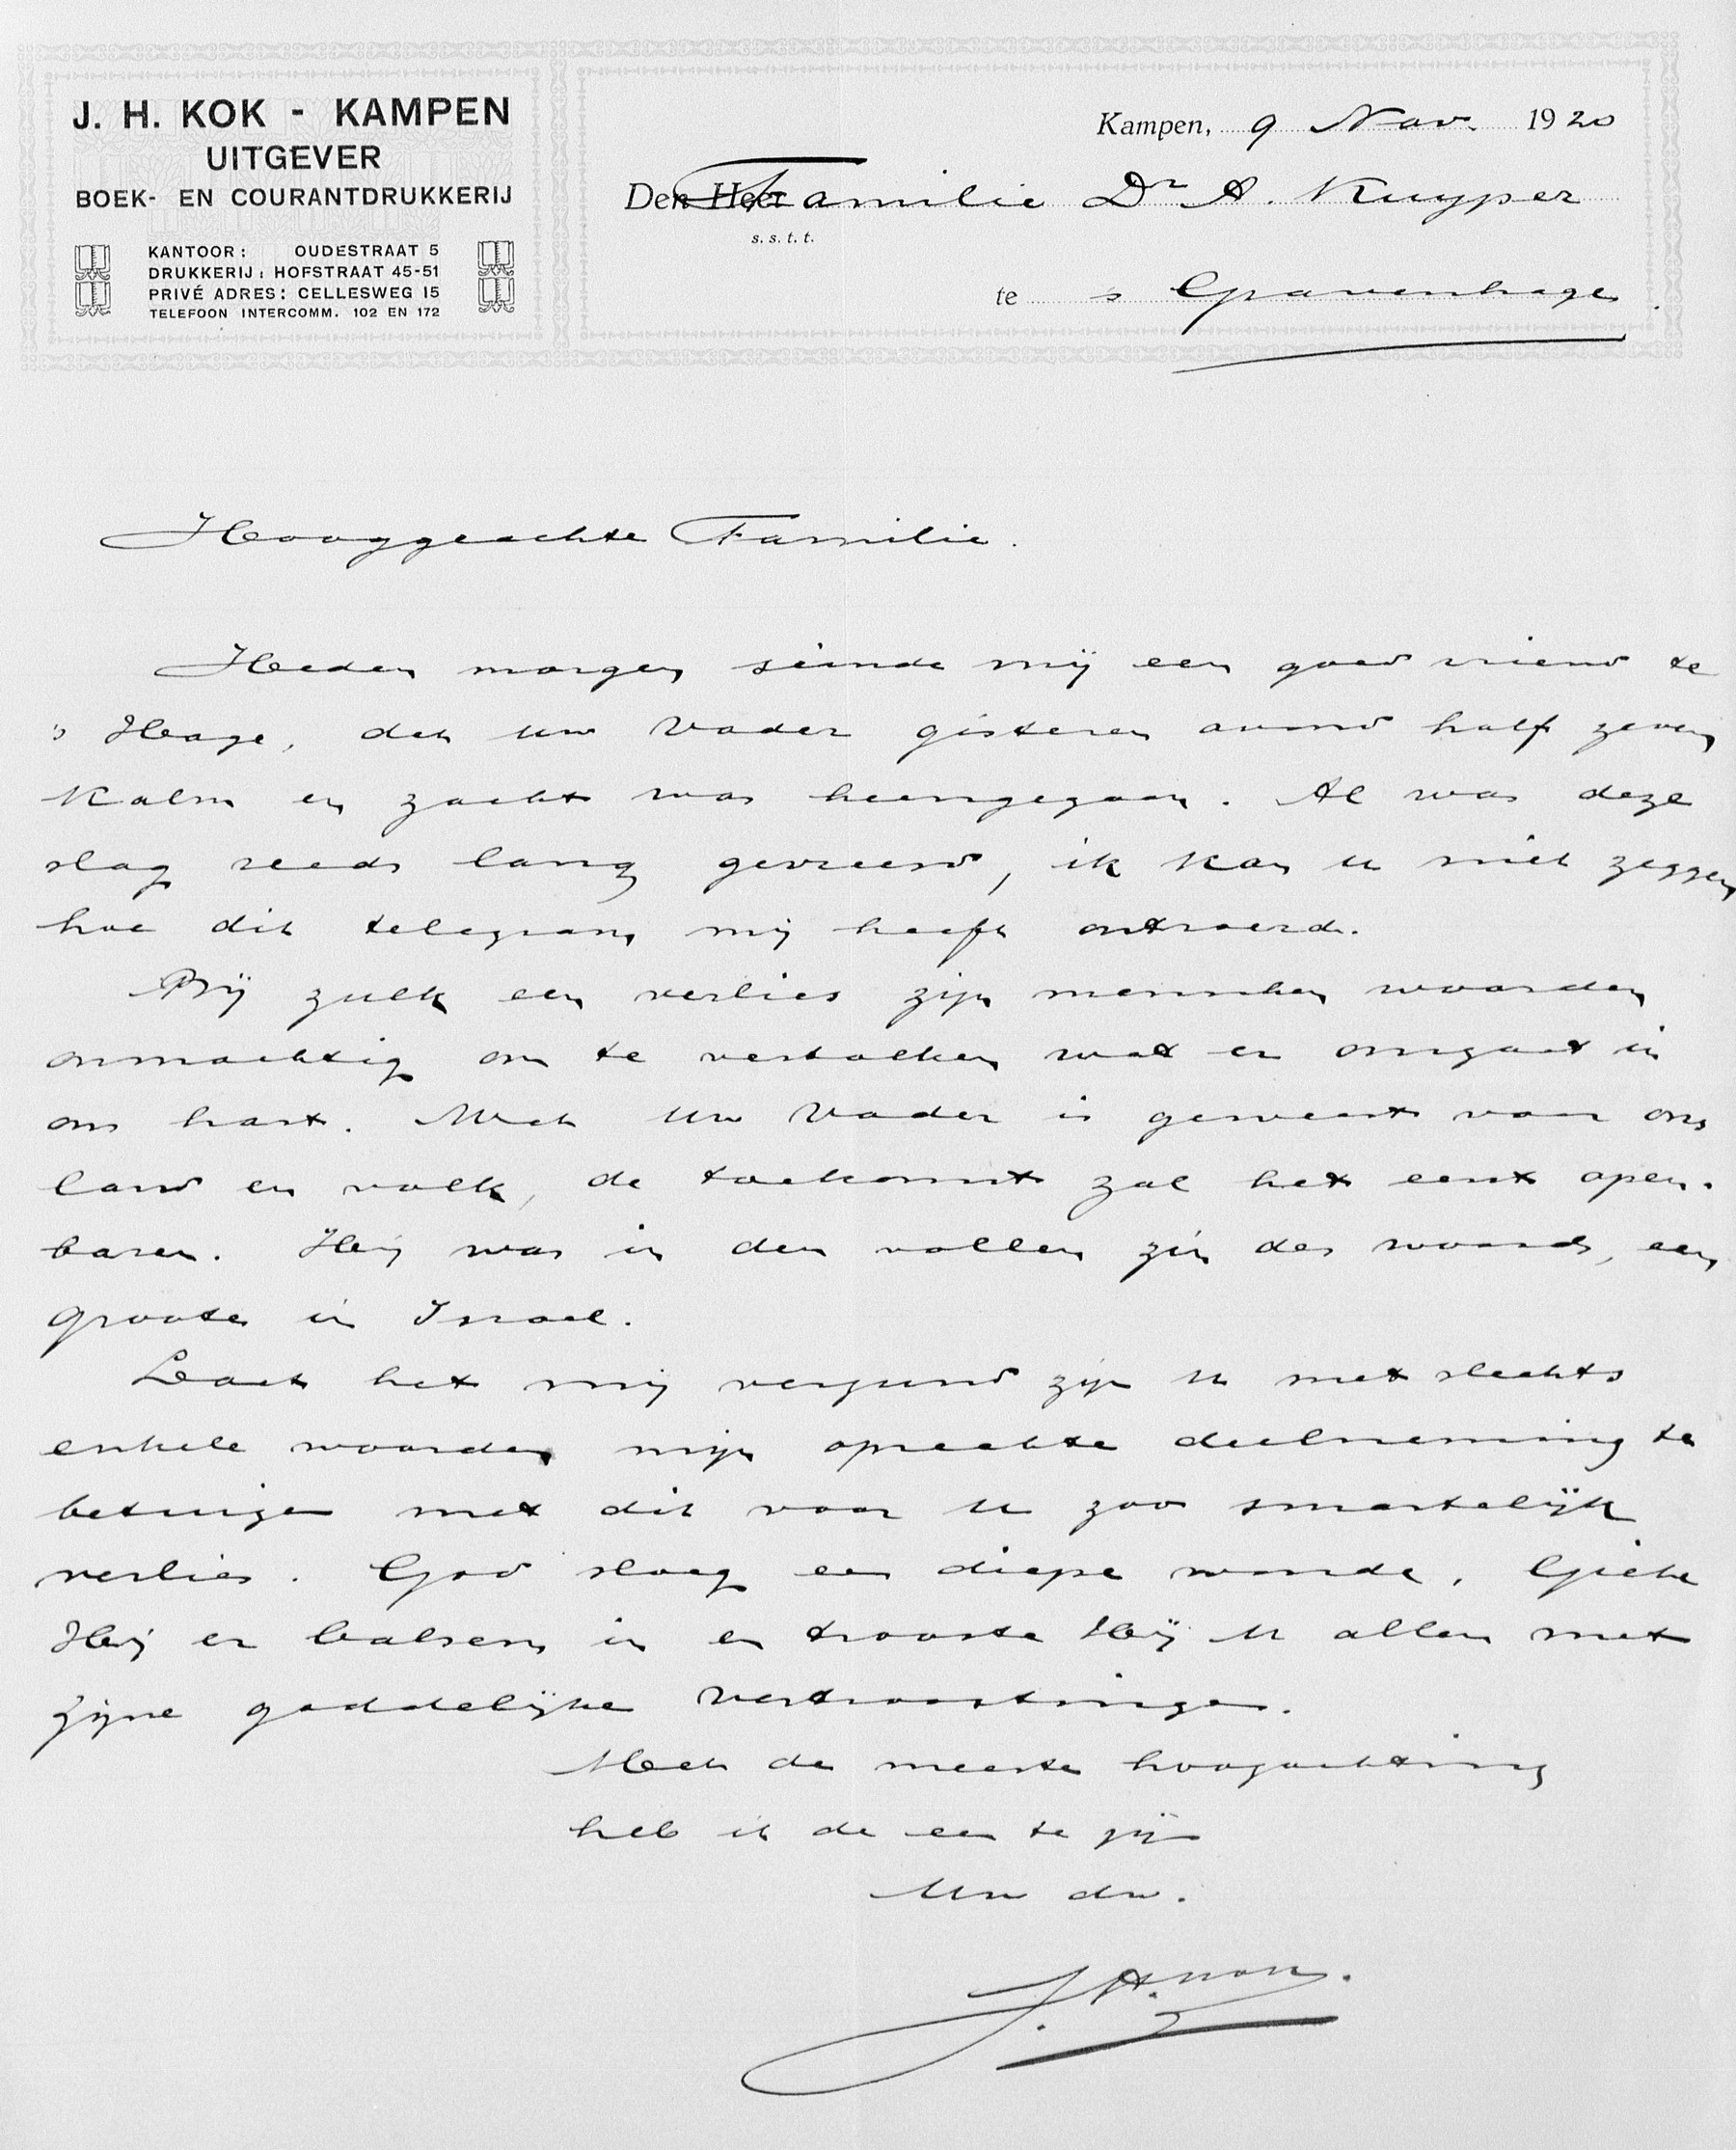 J. H. KOK - KAMPEN
UITGEVER
BOEK- EN COURANTDRUKKERIJ
KANTOOR: OUDESTRAAT 5
DRUKKERIJ: HOFSTRAAT 45-51
PRIVÉ ADRES: CELLESWEG 15
TELEFOON INTERCOMM. 102 EN 172
Kampen, 9 Nov. 1920
Den Heer Familie Dr A. Kuyper
s. s. t. t.
te 's Gravenhage.
Hooggeachte Familie.
Heden morgen seinde mij een goed vriend te
's Hage, dat uw Vader gisteren avond half zeven
kalm en zacht was heengegaan. Al was deze
slag reeds lang gevreesd, ik kan u niet zeggen
hoe dit telegram mij heeft ontroerd.
Bij zulk een verlies zijn menschen woorden
onmachtig om te vertolken wat er omgaat in
ons hart. Wat Uw Vader is geweest voor ons
land en volk, de toekomst zal het eerst open-
baren. Hij was in den vollen zin des woords, een
groote in Israel.
Laat het mij vergund zijn U met slechts
enkele woorden mijn oprechte deelneming te
betuigen met dit voor U zoo smartelijk
verlies. God sloeg een diepe wonde. Giete
Hij er balsem in en trooste Hij U allen met
zijne goddelijke Vertroostingen.
Met de meeste hoogachting
heb ik de eer te zijn
Uw dw.
J. H. Kok.